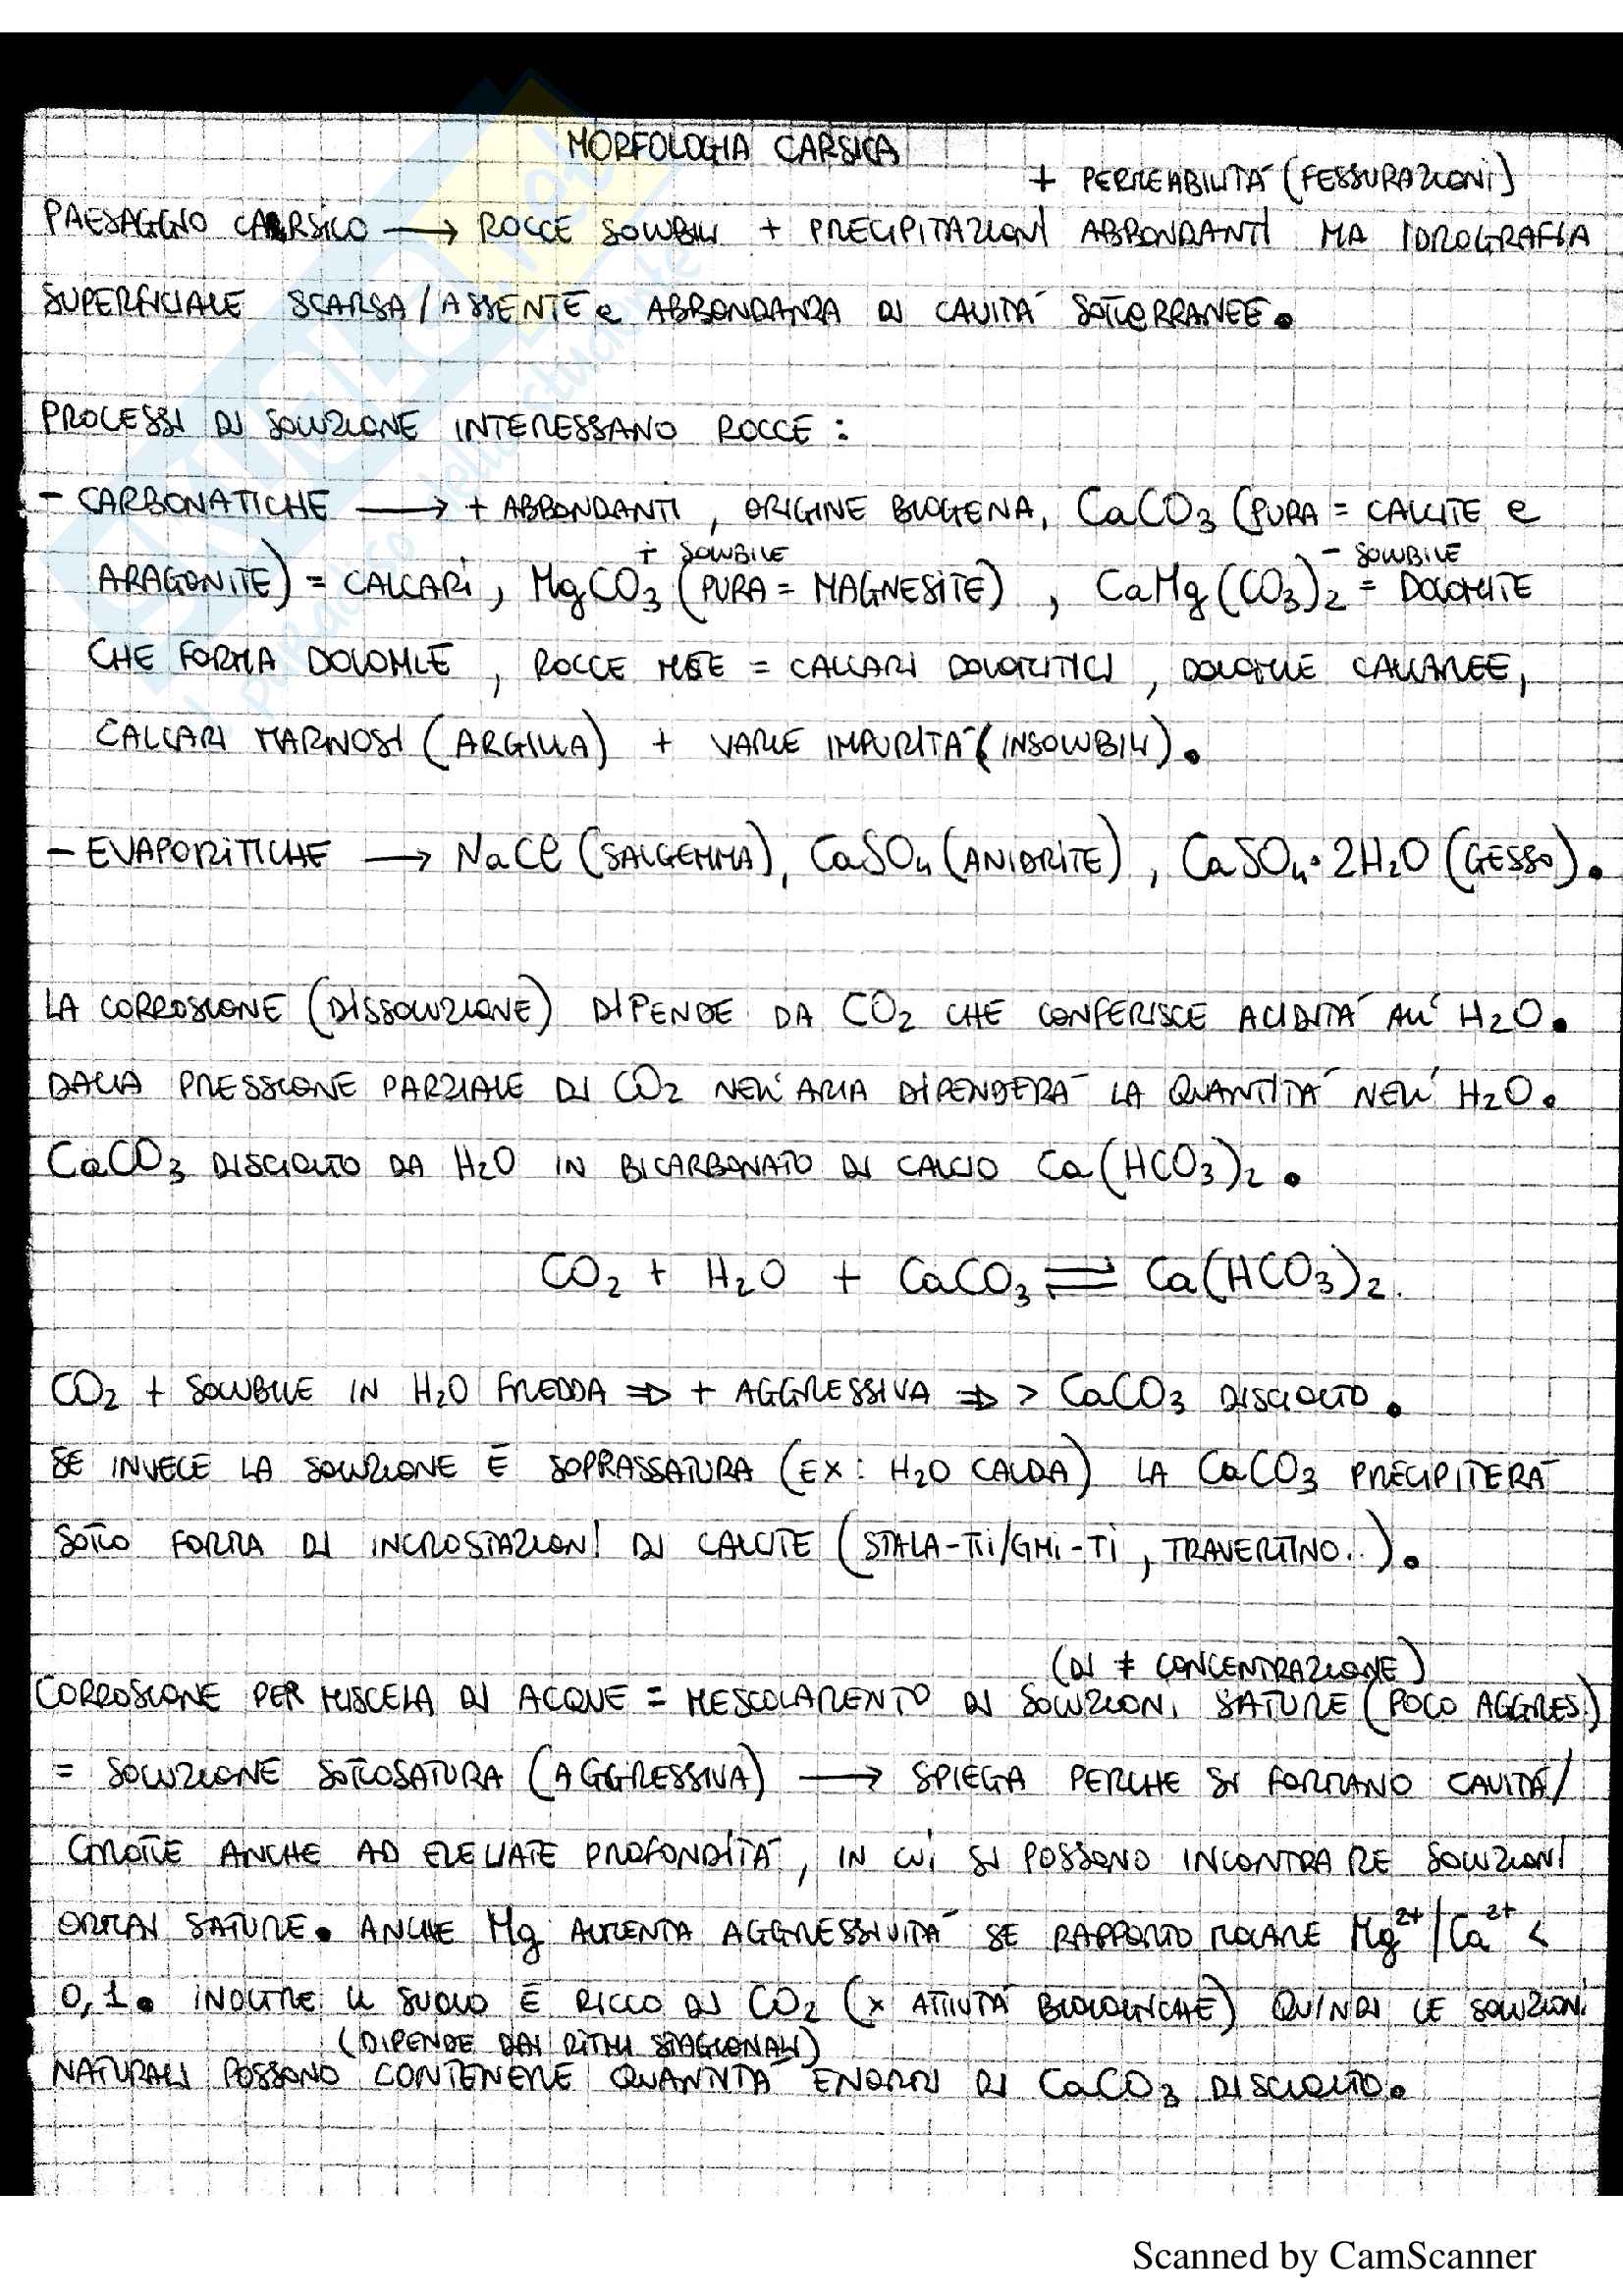 MORFOLOGIA CARSICA
+ PERMEABILITÀ (FESSURAZIONI)
PAESAGGIO CARSICO → ROCCE SOLUBILI + PRECIPITAZIONI ABBONDANTI MA IDROGRAFIA
SUPERFICIALE SCARSA/ASSENTE e ABBONDANZA DI CAVITÀ SOTTERRANEE.
PROCESSI DI SOLUZIONE INTERESSANO ROCCE :
- CARBONATICHE → + ABBONDANTI, ORIGINE BIOGENA, CaCO₃ (PURA = CALCITE e
+ SOLUBILE - SOLUBILE
ARAGONITE) = CALCARI, MgCO₃ (PURA = MAGNESITE), CaMg(CO₃)₂ = DOLOMITE
CHE FORMA DOLOMIE, ROCCE MISTE = CALCARI DOLOMITICI, DOLOMIE CALCAREE,
CALCARI MARNOSI (ARGILLA) + VARIE IMPURITÀ (INSOLUBILI).
- EVAPORITICHE → NaCl (SALGEMMA), CaSO₄ (ANIDRITE), CaSO₄·2H₂O (GESSO).
LA CORROSIONE (DISSOLUZIONE) DIPENDE DA CO₂ CHE CONFERISCE ACIDITÀ ALL' H₂O.
DALLA PRESSIONE PARZIALE DI CO₂ NELL'ARIA DIPENDERÀ LA QUANTITÀ NELL' H₂O.
CaCO₃ DISCIOLTO DA H₂O IN BICARBONATO DI CALCIO Ca(HCO₃)₂.
CO₂ + H₂O + CaCO₃ ⇌ Ca(HCO₃)₂.
CO₂ + SOLUBILE IN H₂O FREDDA ⇒ + AGGRESSIVA ⇒ > CaCO₃ DISCIOLTO.
SE INVECE LA SOLUZIONE È SOPRASSATURA (EX: H₂O CALDA) LA CaCO₃ PRECIPITERÀ
SOTTO FORMA DI INCROSTAZIONI DI CALCITE (STALA-TTI/GMI-TI, TRAVERTINO..).
(DI ≠ CONCENTRAZIONE)
CORROSIONE PER MISCELA DI ACQUE = MESCOLAMENTO DI SOLUZIONI SATURE (POCO AGGRES.)
= SOLUZIONE SOTTOSATURA (AGGRESSIVA) → SPIEGA PERCHE SI FORMANO CAVITÀ/
GROTTE ANCHE AD ELEVATE PROFONDITÀ, IN CUI SI POSSONO INCONTRARE SOLUZIONI
ORMAI SATURE. ANCHE Mg AUMENTA AGGRESSIVITÀ SE RAPPORTO MOLARE Mg²⁺/Ca²⁺ <
0,1. INOLTRE IL SUOLO È RICCO DI CO₂ (x ATTIVITÀ BIOLOGICHE) QUINDI LE SOLUZIONI
(DIPENDE DAI RITMI STAGIONALI)
NATURALI POSSONO CONTENERE QUANTITÀ ENORMI DI CaCO₃ DISCIOLTO.
Scanned by CamScanner